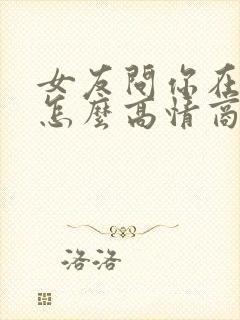 女友問你在
怎麼高情商
洛洛